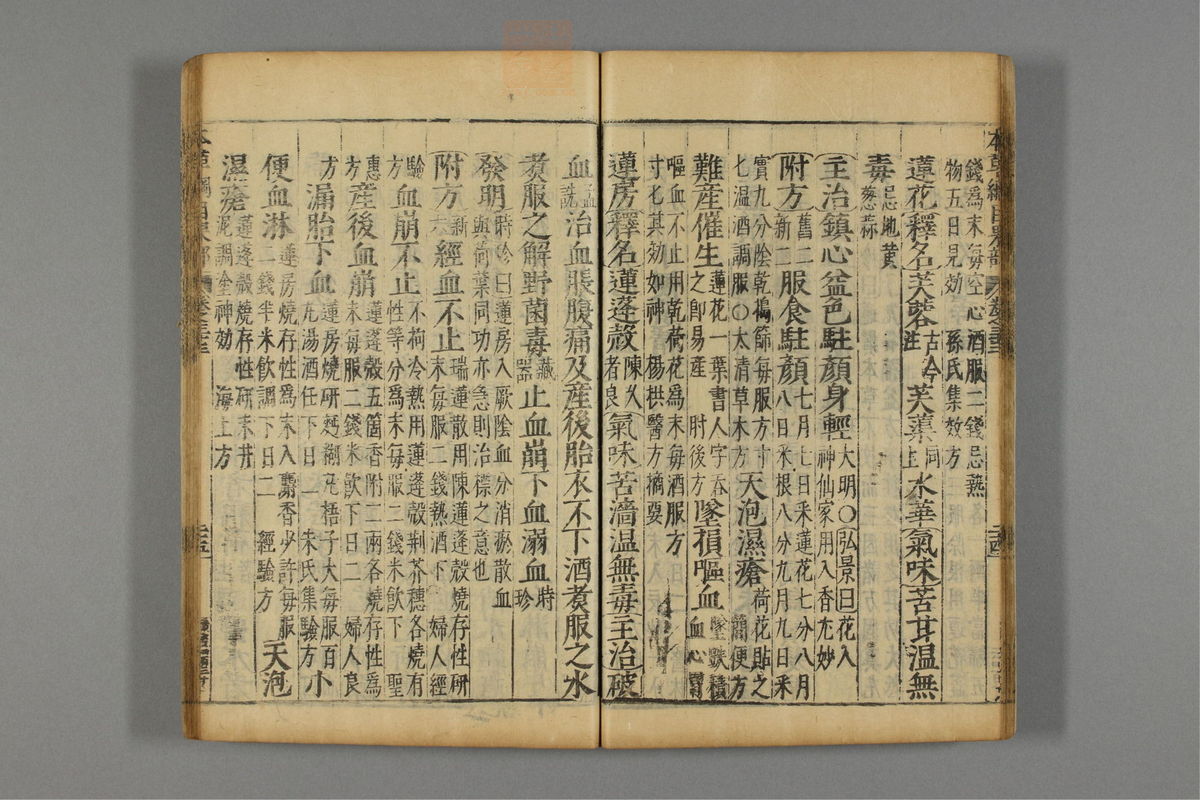 錢爲末每空心酒服二錢忌燕
物五日見効 孫氏集效方
蓮花釋名芙蓉古今注芙蕖同上水華氣味苦甘溫無
毒忌地黃葱蒜
主治鎮心益色駐顏身輕大明○弘景曰花入神仙家用入香尤妙
附方舊二新二服食駐顏七月七日采蓮花七分八月八日采根八分九月九日采
實九分陰乾擣篩每服方寸
七溫酒調服○太清草木方天泡濕瘡荷花貼之簡便方
難産催生蓮花一葉書人字吞之卽易産 肘後方墜損嘔血墜跌積血心胃
嘔血不止用乾荷花爲末每酒服方
寸匕其効如神 楊拱醫方摘要
蓮房釋名蓮蓬殼陳久者良氣味苦濇溫無毒主治破
血孟詵治血脹腹痛及産後胎衣不下酒煑服之水
煑服之解野菌毒藏器止血崩下血溺血時珍
發明時珍曰蓮房入厥陰血分消瘀散血與荷葉同功亦急則治標之意也
附方新六經血不止瑞蓮散用陳蓮蓬殼燒存性研末每服二錢熱酒下 婦人經
驗方血崩不止不拘冷熱用蓮蓬殼荆芥穗各燒存性等分爲末每服二錢米飮下 聖
惠方産後血崩蓮蓬殼五箇香附二兩各燒存性爲末每服二錢米飮下日二 婦人良
方漏胎下血蓮房燒研麪糊丸梧子大每服百丸湯酒任下日二 朱氏集驗方小
便血淋蓮房燒存性爲末入麝香少許每服二錢半米飮調下日二 經驗方天泡
濕瘡蓮蓬殼燒存性研末井泥調塗神効 海上方